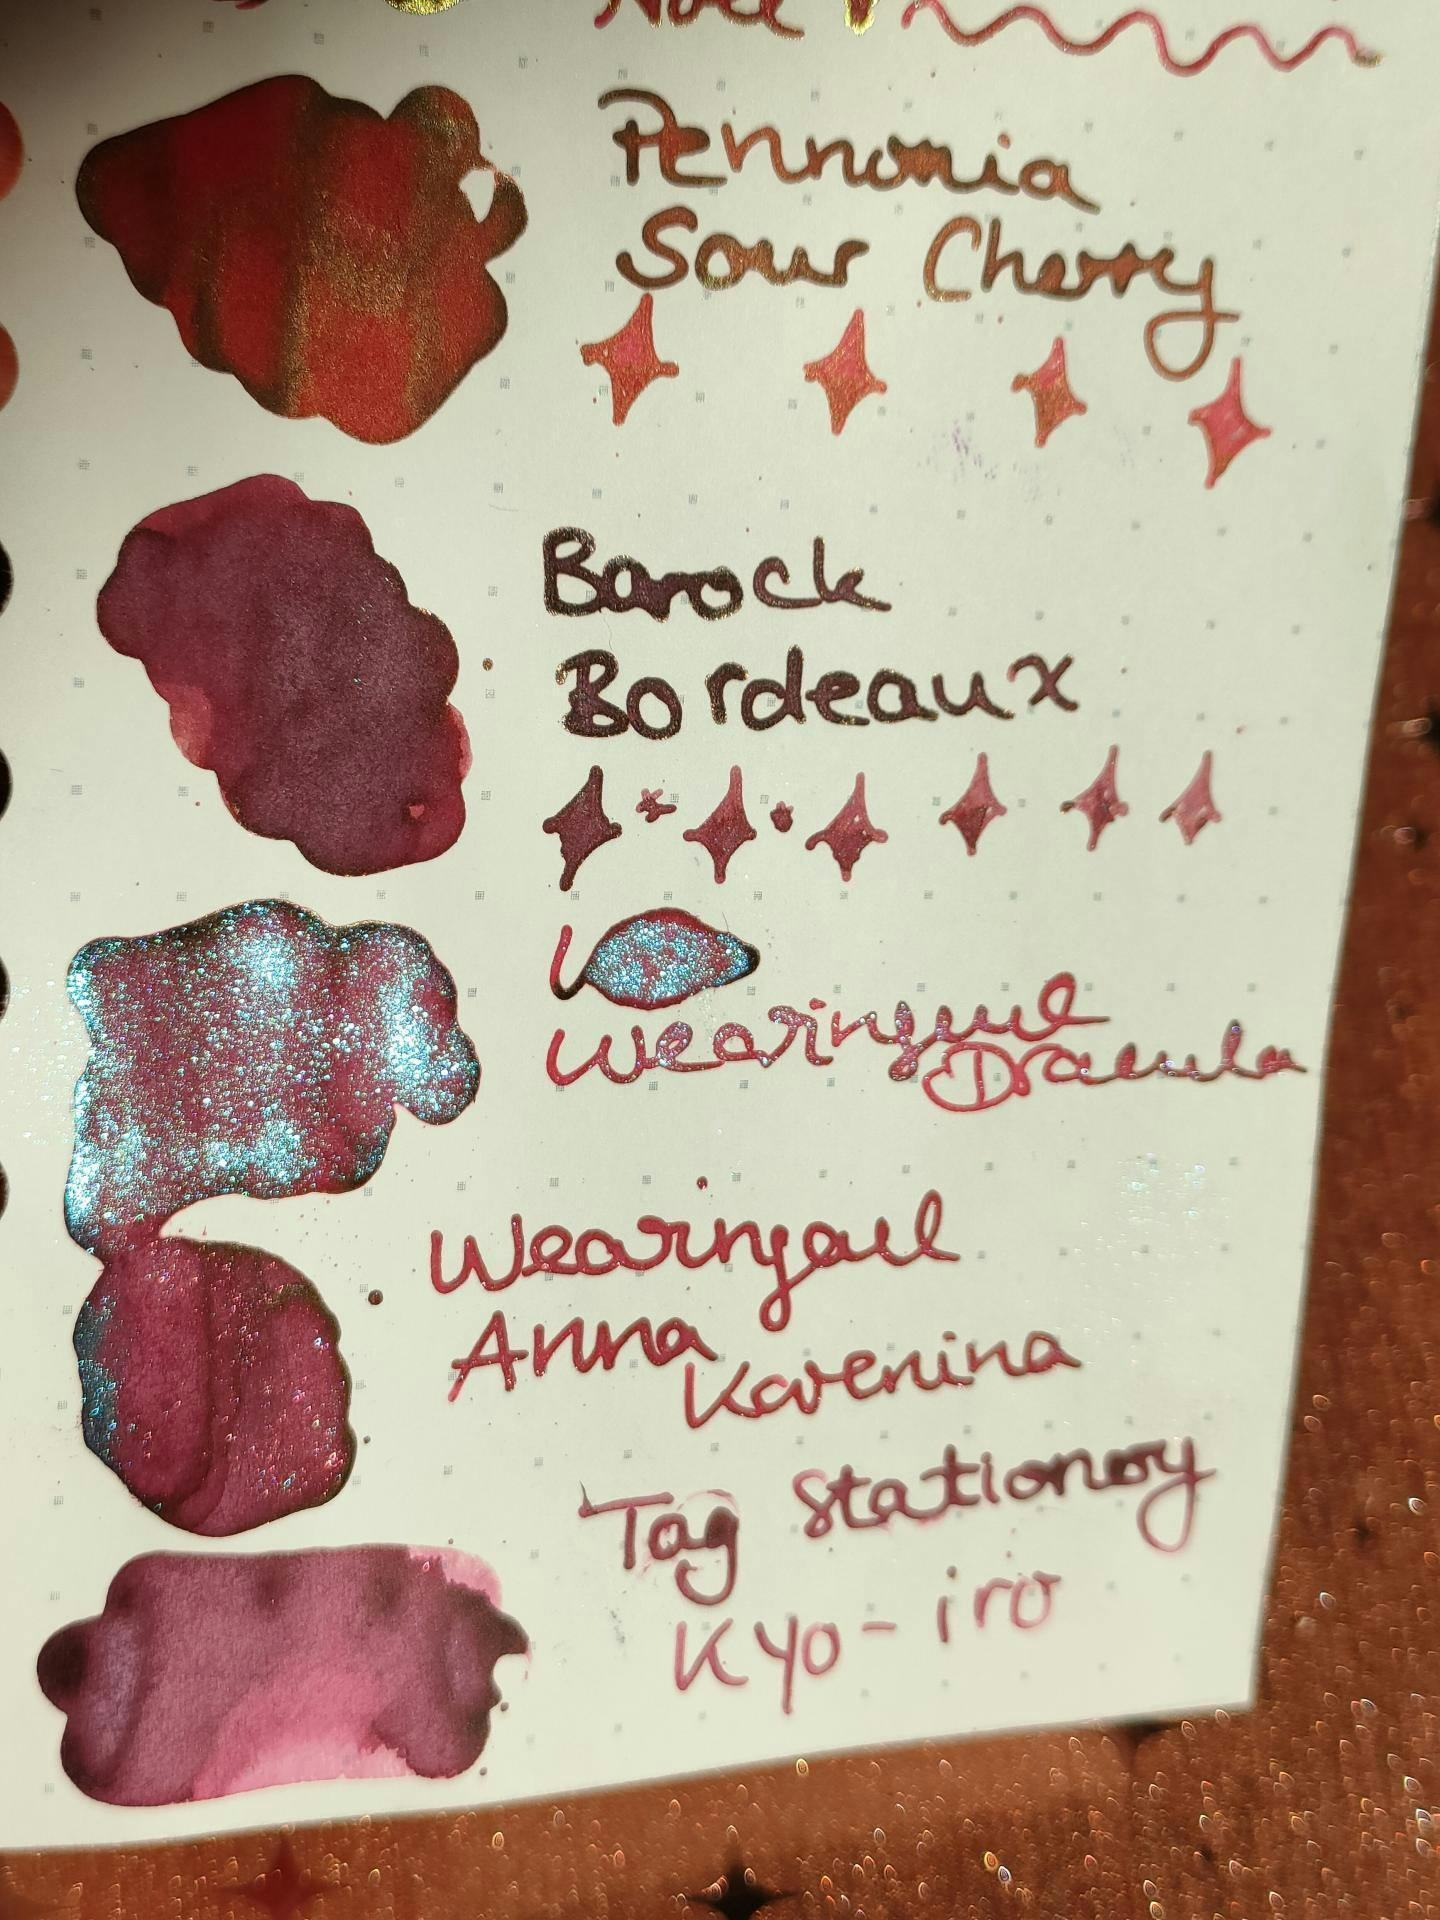 Pennonia
Sour Cherry
Barock
Bordeaux
Wearingeul
Dracula
Wearingeul
Anna
Karenina
Tag Stationery
Kyo-iro